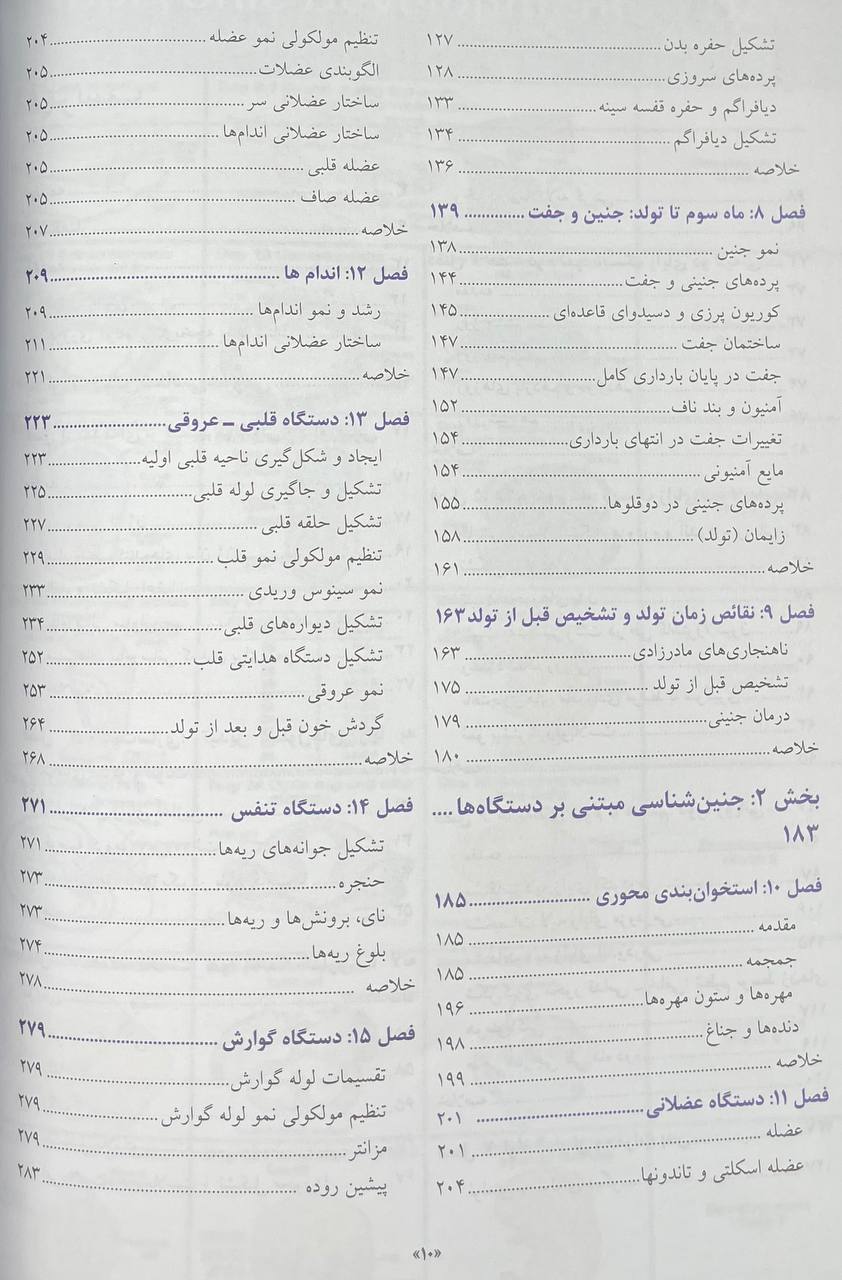 تشکیل حفره بدن ........ ۱۲۷
پرده‌های سروزی ........ ۱۲۸
دیافراگم و حفره قفسه سینه ........ ۱۳۳
تشکیل دیافراگم ........ ۱۳۴
خلاصه ........ ۱۳۶
فصل ۸: ماه سوم تا تولد: جنین و جفت ........ ۱۳۹
نمو جنین ........ ۱۳۸
پرده‌های جنینی و جفت ........ ۱۴۴
کوریون پرزی و دسیدوای قاعده‌ای ........ ۱۴۵
ساختمان جفت ........ ۱۴۷
جفت در پایان بارداری کامل ........ ۱۴۷
آمنیون و بند ناف ........ ۱۵۲
تغییرات جفت در انتهای بارداری ........ ۱۵۴
مایع آمنیونی ........ ۱۵۴
پرده‌های جنینی در دوقلوها ........ ۱۵۵
زایمان (تولد) ........ ۱۵۸
خلاصه ........ ۱۶۱
فصل ۹: نقائص زمان تولد و تشخیص قبل از تولد ۱۶۳
ناهنجاری‌های مادرزادی ........ ۱۶۳
تشخیص قبل از تولد ........ ۱۷۵
درمان جنینی ........ ۱۷۹
خلاصه ........ ۱۸۰
بخش ۲: جنین‌شناسی مبتنی بر دستگاه‌ها ....
۱۸۳
فصل ۱۰: استخوان‌بندی محوری ........ ۱۸۵
مقدمه ........ ۱۸۵
جمجمه ........ ۱۸۵
مهره‌ها و ستون مهره‌ها ........ ۱۹۶
دنده‌ها و جناغ ........ ۱۹۸
خلاصه ........ ۱۹۹
فصل ۱۱: دستگاه عضلانی ........ ۲۰۱
عضله ........ ۲۰۱
عضله اسکلتی و تاندونها ........ ۲۰۴
تنظیم مولکولی نمو عضله ........ ۲۰۴
الگوبندی عضلات ........ ۲۰۵
ساختار عضلانی سر ........ ۲۰۵
ساختار عضلانی اندام‌ها ........ ۲۰۵
عضله قلبی ........ ۲۰۵
عضله صاف ........ ۲۰۵
خلاصه ........ ۲۰۷
فصل ۱۲: اندام ها ........ ۲۰۹
رشد و نمو اندام‌ها ........ ۲۰۹
ساختار عضلانی اندام‌ها ........ ۲۱۱
خلاصه ........ ۲۲۱
فصل ۱۳: دستگاه قلبی ـ عروقی ........ ۲۲۳
ایجاد و شکل‌گیری ناحیه قلبی اولیه ........ ۲۲۳
تشکیل و جاگیری لوله قلبی ........ ۲۲۵
تشکیل حلقه قلبی ........ ۲۲۷
تنظیم مولکولی نمو قلب ........ ۲۲۹
نمو سینوس وریدی ........ ۲۳۳
تشکیل دیواره‌های قلبی ........ ۲۳۴
تشکیل دستگاه هدایتی قلب ........ ۲۵۲
نمو عروقی ........ ۲۵۳
گردش خون قبل و بعد از تولد ........ ۲۶۴
خلاصه ........ ۲۶۸
فصل ۱۴: دستگاه تنفس ........ ۲۷۱
تشکیل جوانه‌های ریه‌ها ........ ۲۷۱
حنجره ........ ۲۷۳
نای، برونش‌ها و ریه‌ها ........ ۲۷۳
بلوغ ریه‌ها ........ ۲۷۴
خلاصه ........ ۲۷۸
فصل ۱۵: دستگاه گوارش ........ ۲۷۹
تقسیمات لوله گوارش ........ ۲۷۹
تنظیم مولکولی نمو لوله گوارش ........ ۲۷۹
مزانتر ........ ۲۷۹
پیشین روده ........ ۲۸۳
«۱۰»